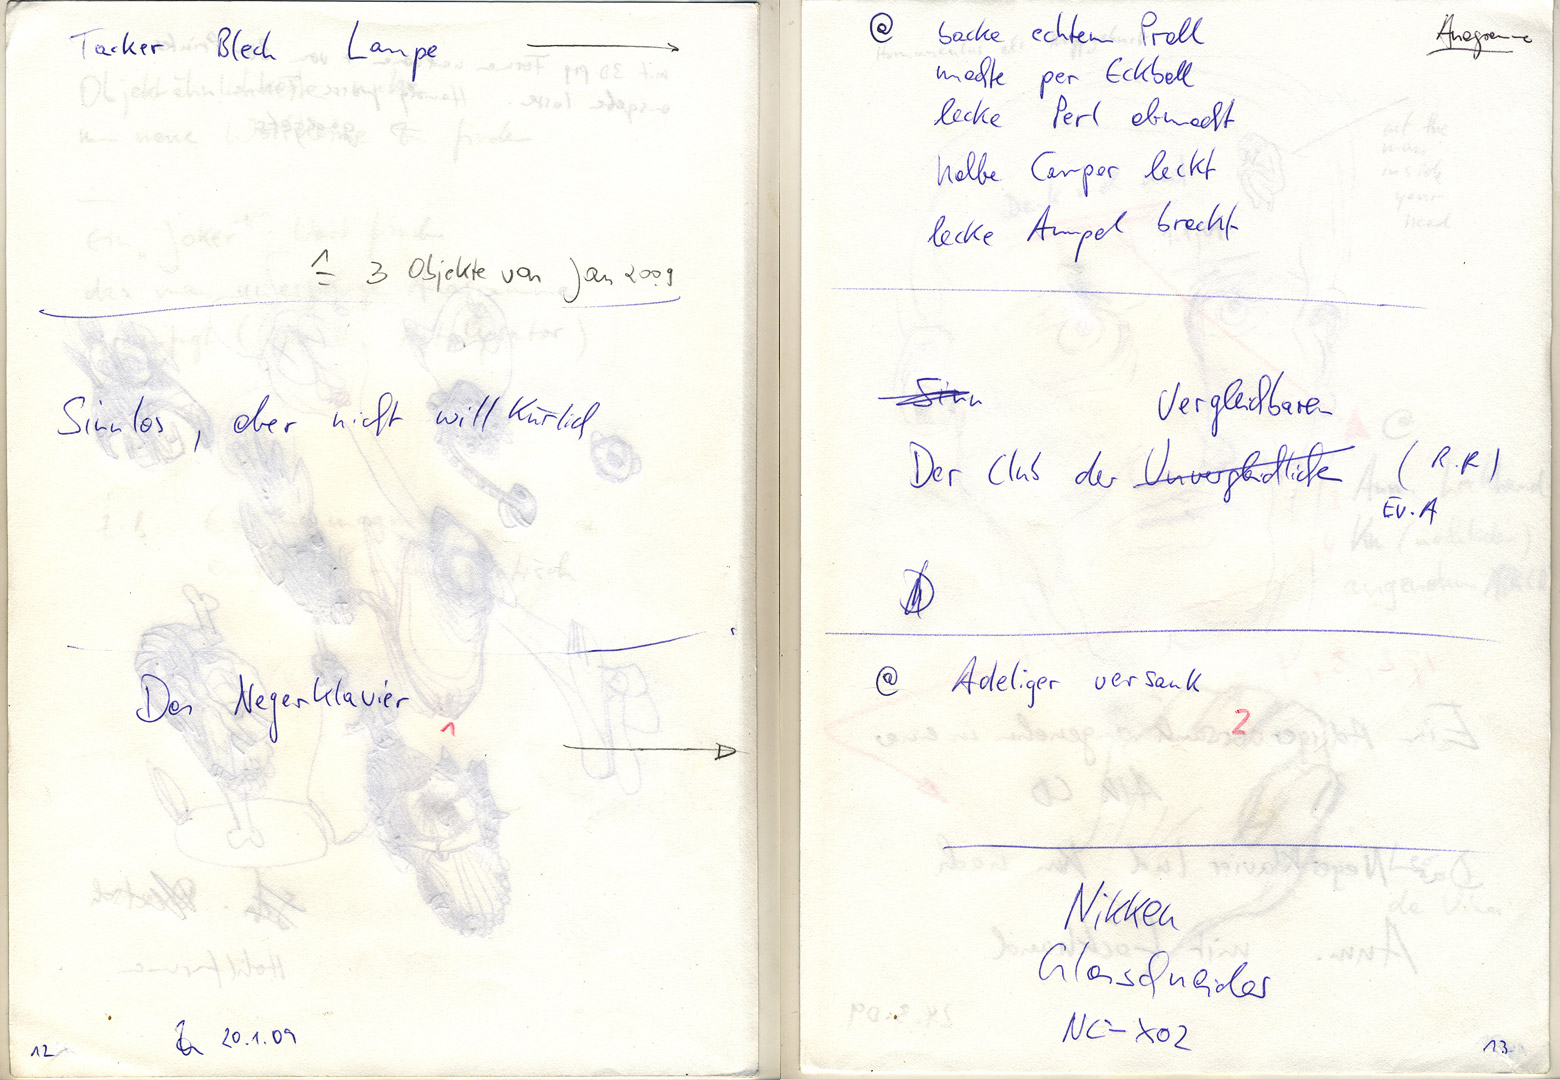 Tacker Blech Lampe
≙ 3 Objekte von Jan 2009
Sinnlos, aber nicht willkürlich
Das Negerklavier
1
20.1.09
12
@ backe echtem Prall
Anagramme
machte per Eckball
lecke Perl abmacht
halbe Camper leckt
lecke Ampel bracht
Sinn
Vergleichbaren
Der Club der Unvergleichlichen (R.R)
EV.A
@ Adeliger versank
2
Nikken
Glasschneider
NC-X02
13